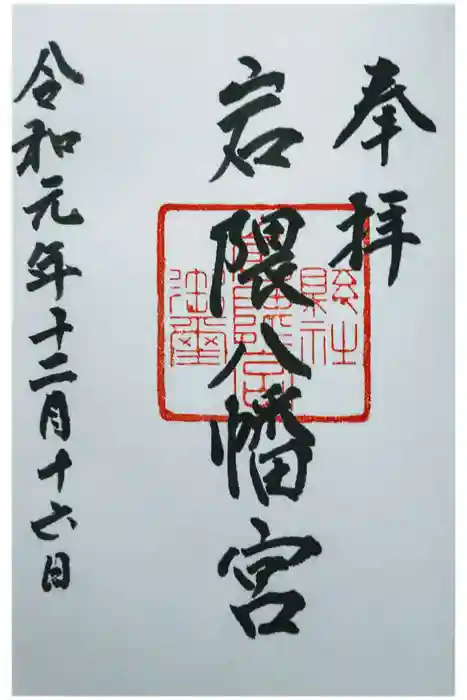 奉拝
岩隈八幡宮
令和元年十二月十六日
縣社